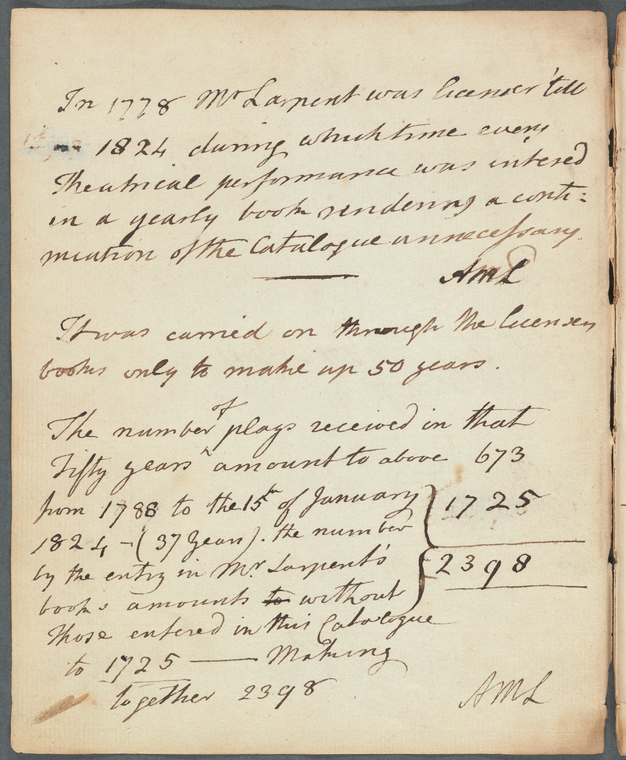 In 1778 Mr Larpent was licenser 'till
1824 during which time every
Theatrical performance was entered
in a yearly book rendering a conti-
nuation of the Catalogue unnecessary.
AML
It was carried on through the licensers
books only to make up 50 years.
The number of plays received in that
Fifty years amount to above 673
from 1788 to the 15th of January 1725
1824 - (37 Years). the number
by the entry in Mr Larpent's 2398
books amounts to without
those entered in this Catalogue
to 1725 —— Making
together 2398
AML